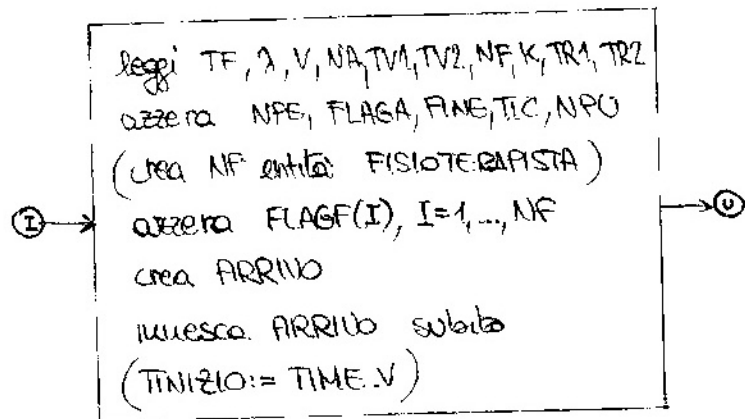 leggi TF, λ, V, NA, TV1, TV2, NF, K, TR1, TR2
azzera NPE, FLAGA, FINE, TIC, NPU
(crea NF entità FISIOTERAPISTA)
I
azzera FLAGF(I), I=1,..., NF
U
crea ARRIVO
innesca ARRIVO subito
(TINIZIO:= TIME.V)